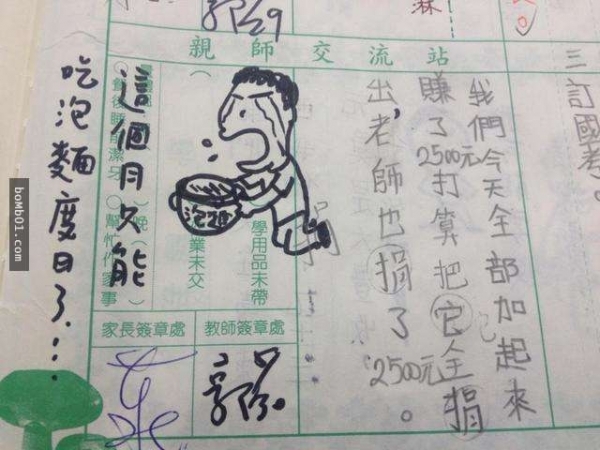 三訂國考。
我們今天全部加起來
賺了2500元打算把它全捐
出,老師也捐了2500元。
親師交流站
學用品未帶
業未交
泡麵
飯後睡前潔牙
晚
幫忙作家事
教師簽章處
家長簽章處
這個月只能
吃泡麵度日了...
boMb01.com